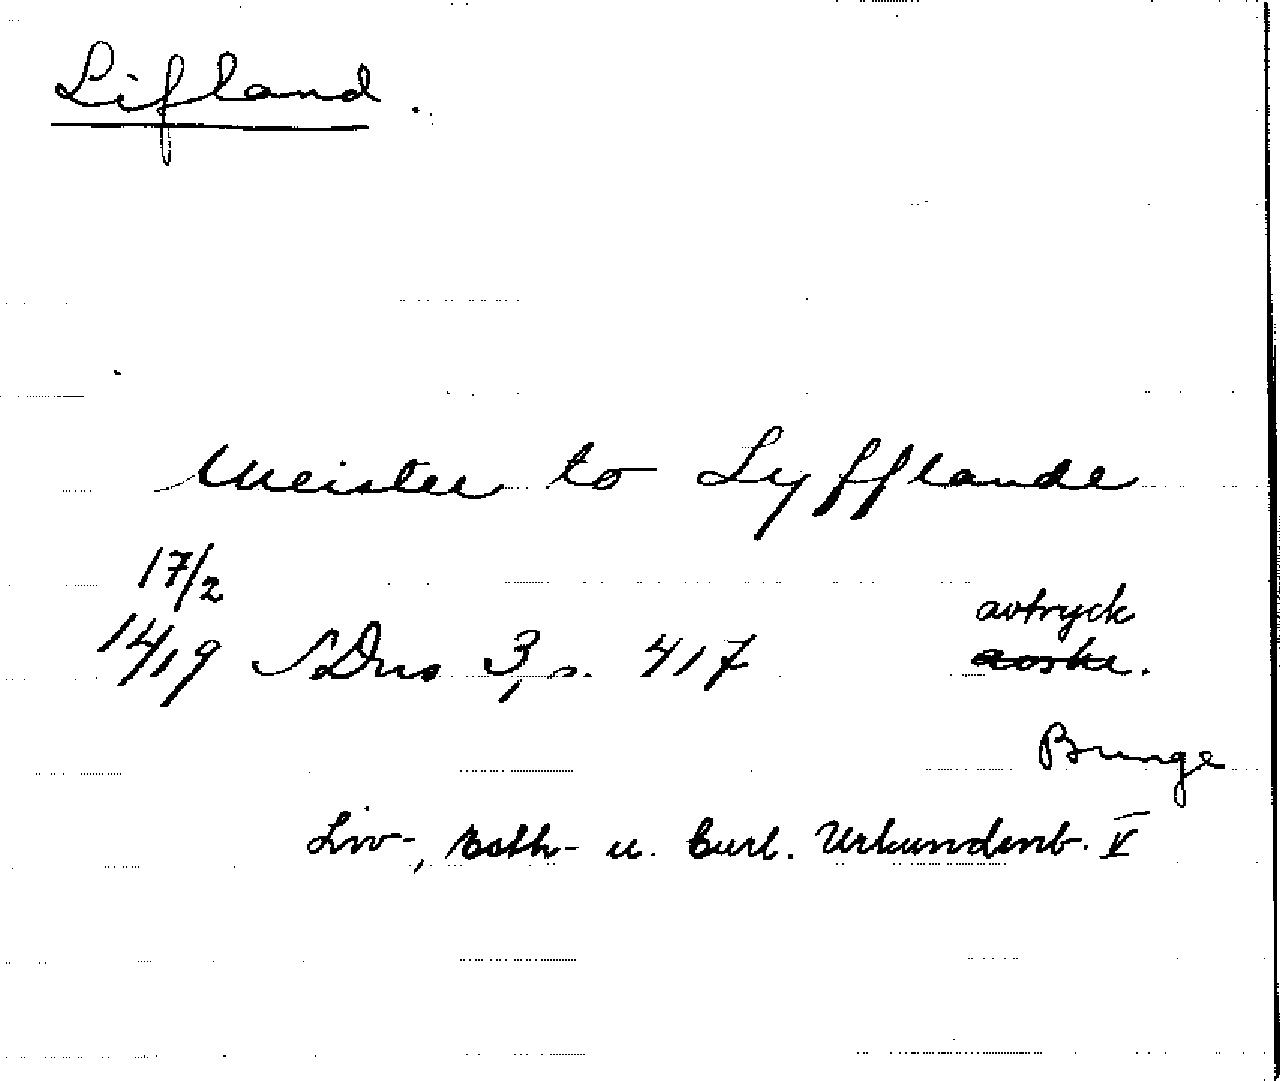 Lifland.
Meister to Lyfflande
17/2
1419 SDns 3, s. 417
avtryck
avskr.
Bunge
Liv-, Esth- u. Curl. Urkundenb. V